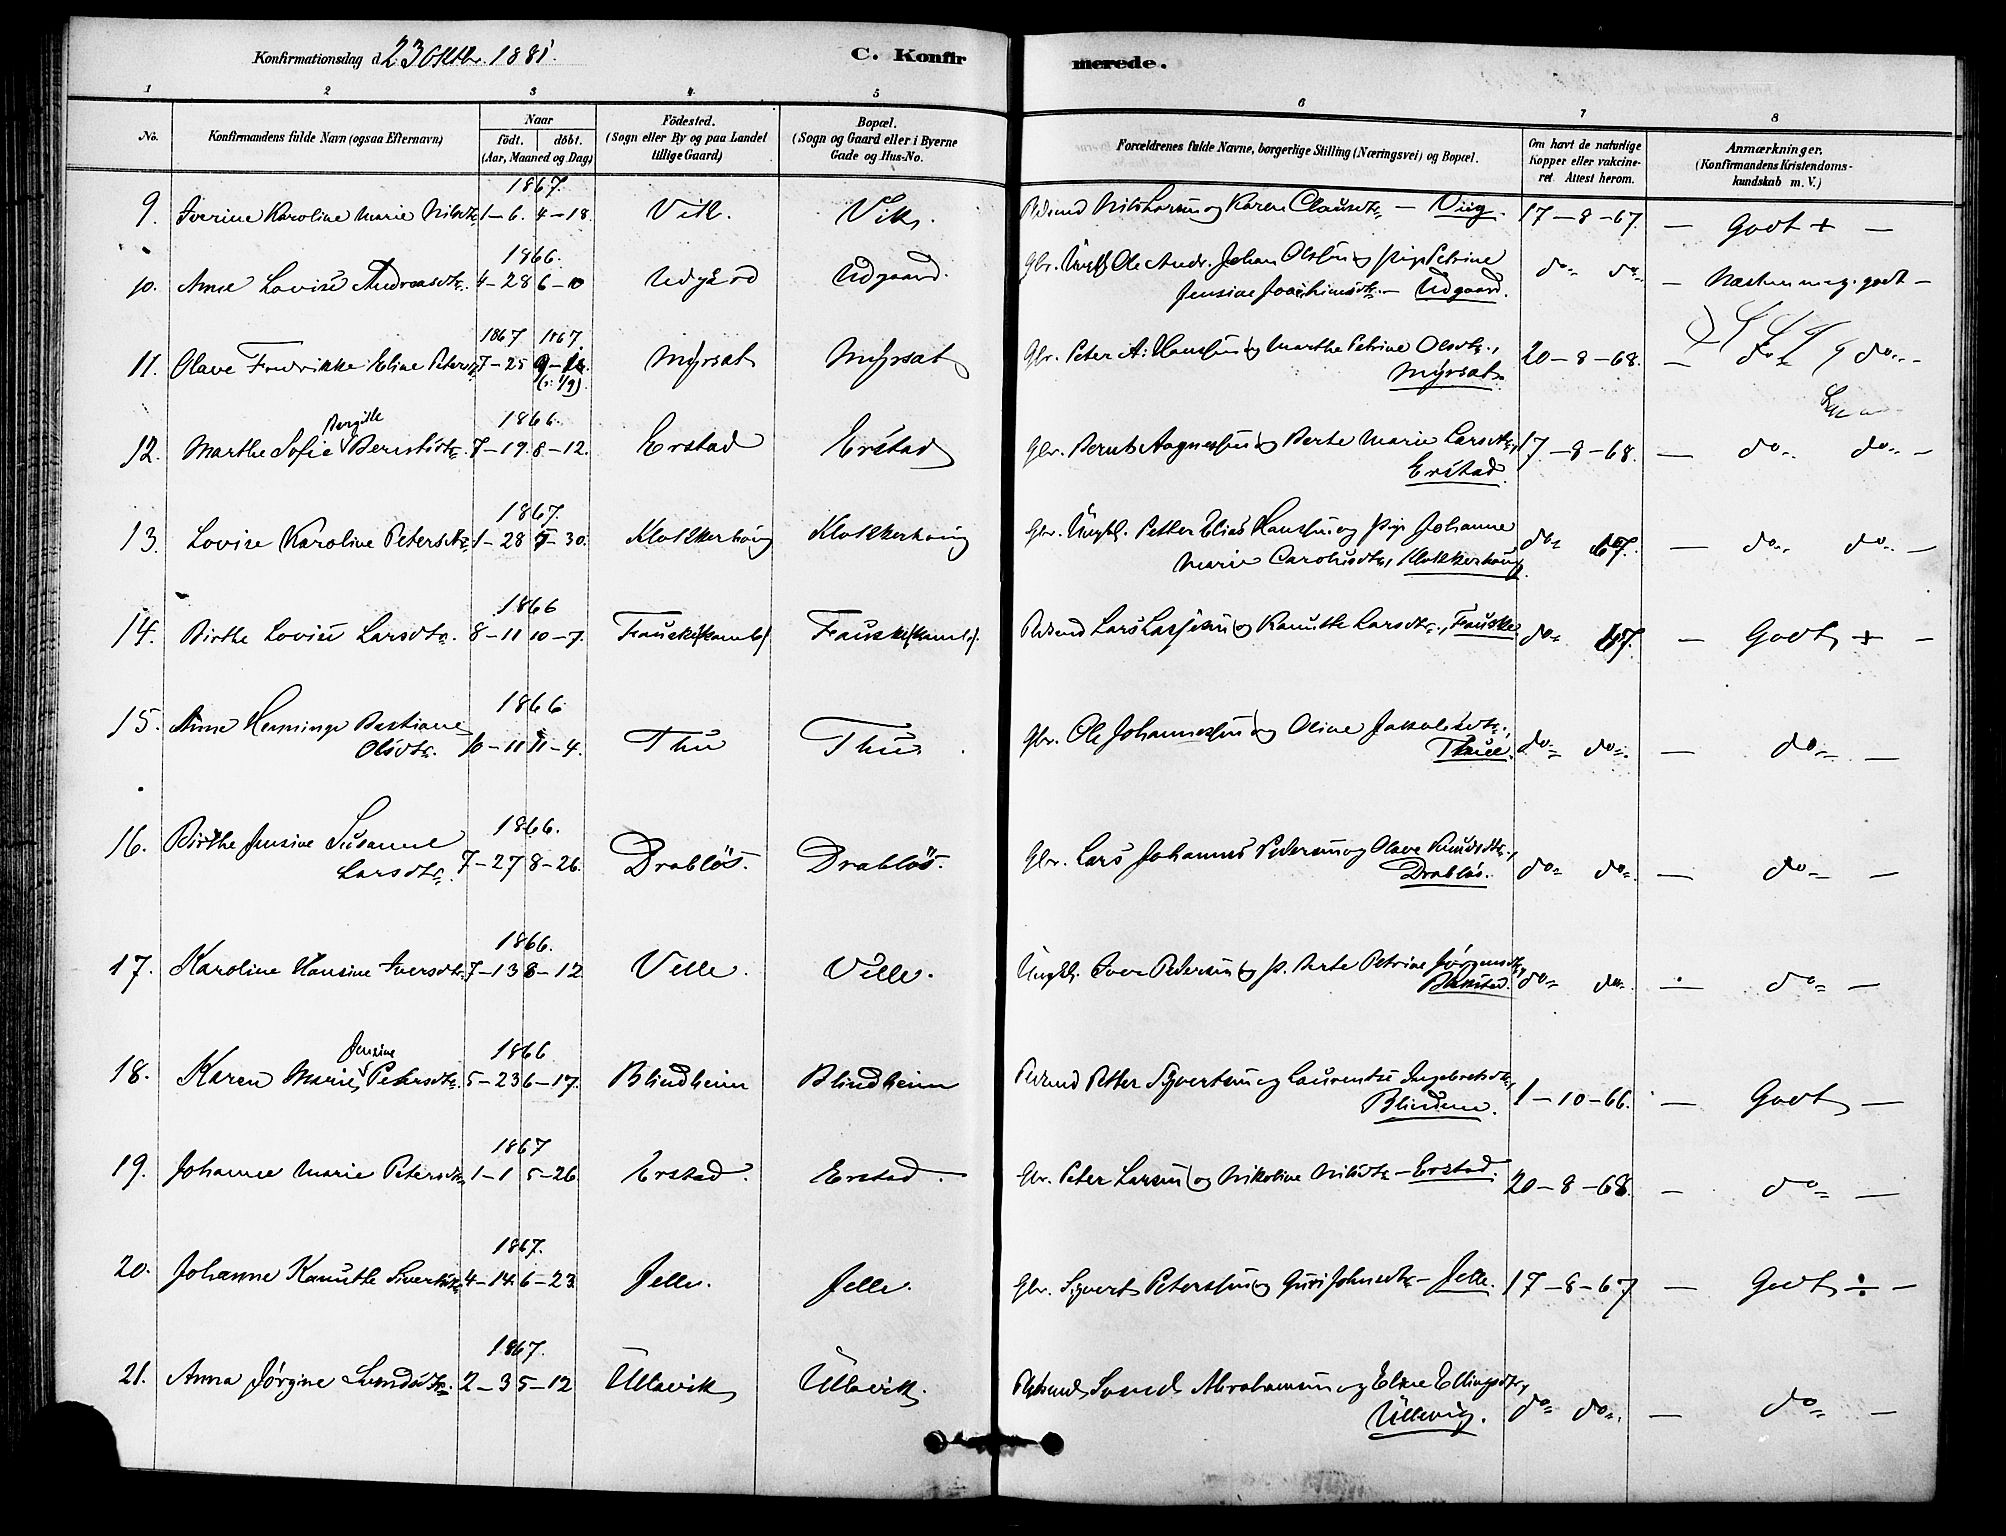 Konfirmationsdag d 23 Oktbr. 1881.
C. Konfirmerede.
1 2 3 4 5 6 7 8
No.
Konfirmandens fulde Navn (ogsaa Efternavn)
Naar
födt. döbt.
(Aar, Maaned og Dag)
Födested.
(Sogn eller By og paa Landet
tillige Gaard)
Bopæl.
(Sogn og Gaard eller i Byerne
Gade og Hus-No.
Forældrenes fulde Navne, borgerlige Stilling (Næringsvei) og Bopæl.
Om havt de naturlige
Kopper eller vakcine-
ret Attest herom.
Anmærkninger.
(Konfirmandens Kristendoms-
kundskab m. V.)
1867.
9. Iverine Karoline Marie Nilsdtr. 1–6. 4–18. Vik. Vik. Nils Larsen og Karen Clausdtr. – Viig. 17–8–67. – Godt + –
1866.
10. Anne Lovise Andreasdtr. 4–28 6–10 Udgård Udgaard. Gbr. Ungk. Ole Andr. Johan Olsen og pige Petrine
Jensine Joachimsdtr. – Udgaard. do do – Næsten meg. godt –
1867 1867.
11. Olave Fredrikke Eline Petersdtr. 7–25 Myrsæt Myrsæt Gbr. Peter A. Hanssen og Marthe Petrine Olsdtr.,
Myrsæt. 20–8–68. – do do –
(v. 1/9)
1866.
Bergitte
12. Marthe Sofie Berntsdtr. 7–19. 8–12. Erstad Erstad Gbr. Bernt Aagnessen og Berte Marie Larsdtr.,
Erstad. 17–8–68. – do do –
1867.
13. Lovise Karoline Petersdtr. 1–28 5–30. Klokkerhoug Klokkerhoug Gbr. Ungk. Petter Elias Hanssen og pige Johanne
Marie Carolusdtr., Klokkerhoug. do 67. – do do –
1866
14. Birthe Lovise Larsdtr. 8–11 10–7. Fauske Fauske Lars Lassesen og Kanutte Larsdtr., Fauske do 67. – Godt + –
1866
15. Anne Henninge Bastiane
Olsdtr. 10–11 11–4. Thu Thu Gbr. Ole Johannessen og Oline Jakobsdtr.,
Thue. do do – do –
1866.
16. Birthe Jensine Susanne
Larsdtr. 7–27 8–26. Drabløs. Drabløs. Gbr. Lars Johannes Pedersen og Olave Knudsdtr.,
Drabløs. do do – do –
1866.
17. Karoline Hansine Iversdtr. 7–13 8–12 Velle. Velle. Ungk. Iver Pedersen og p. Berte Petrine Jørgensdtr.
do do – do –
1866
Jensine
18. Karen Marie Petersdtr. 5–23 6–17. Blindheim Blindheim Petter Syvertsen og Laurentse Ingebretsdtr.,
Blindem. 1–10–66. – Godt –
1867
19. Johanne Marie Petersdtr. 1–1 5–26. Erstad. Erstad. Gbr. Peter Larsen og Nikoline Nilsdtr. – Erstad. 20–8–68. – do –
1867.
20. Johanne Kanutte Sivertsdtr. 4–14. 6–23. Jelle. Jelle. Gbr. Syvert Peterssen og Guri Johnsdtr. – Jelle. 17–8–67. – Godt ÷ –
1867.
21. Anna Jørgine Svendsdtr. 2–3 5–12 Ullavik Ullavik. Svend Abrahamsen og Eline Ellingsdtr.,
Ullevig. do do – do –